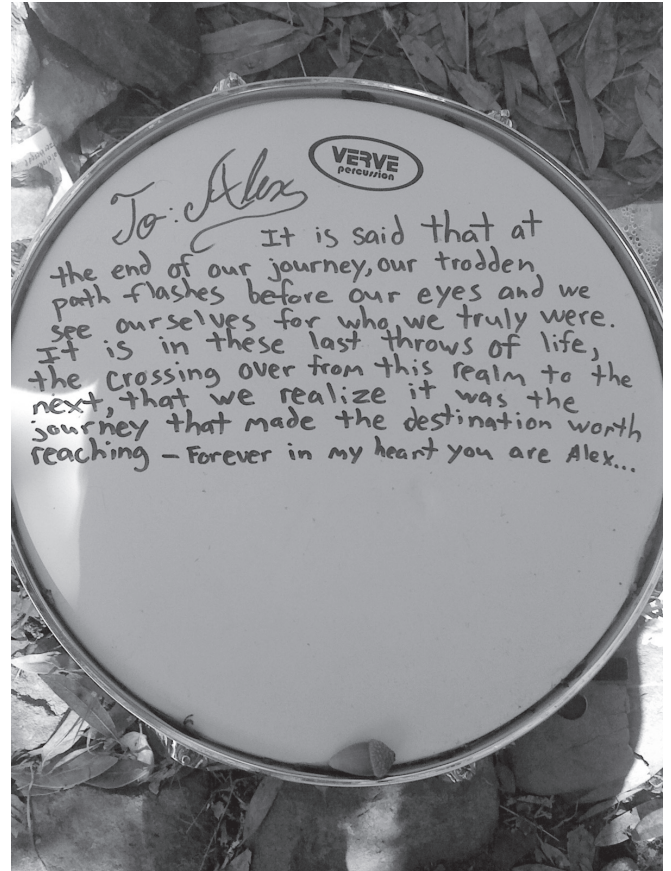 VERVE
percussion
To: Alex
It is said that at
the end of our journey, our trodden
path flashes before our eyes and we
see ourselves for who we truly were.
It is in these last throws of life,
the crossing over from this realm to the
next, that we realize it was the
journey that made the destination worth
reaching – Forever in my heart you are Alex...